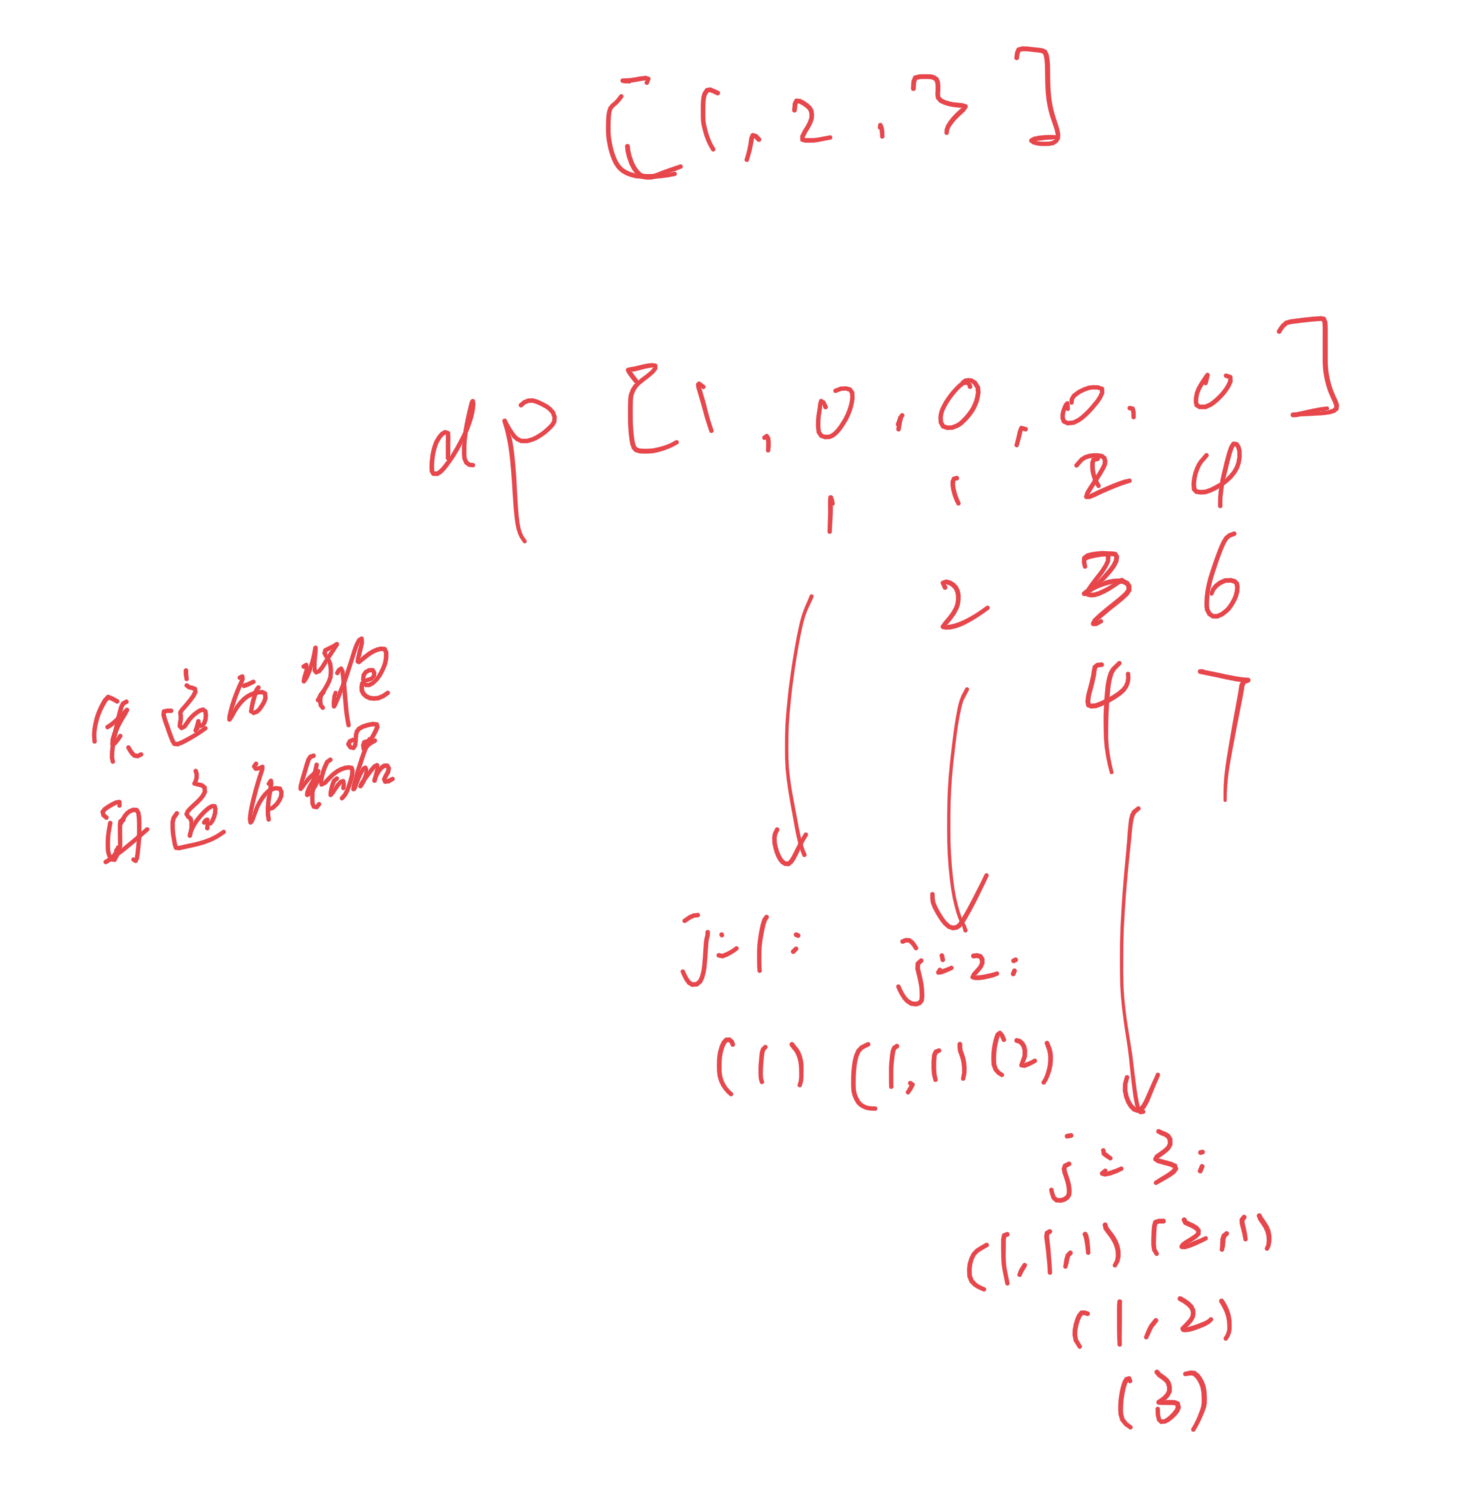 [1,2,3]
dp[1,0,0,0,0]
1 1 2 4
2 3 6
4 7
先遍历背包
再遍历物品
j=1: j=2:
(1) (1,1) (2)
j=3:
(1,1,1) (2,1)
(1,2)
(3)